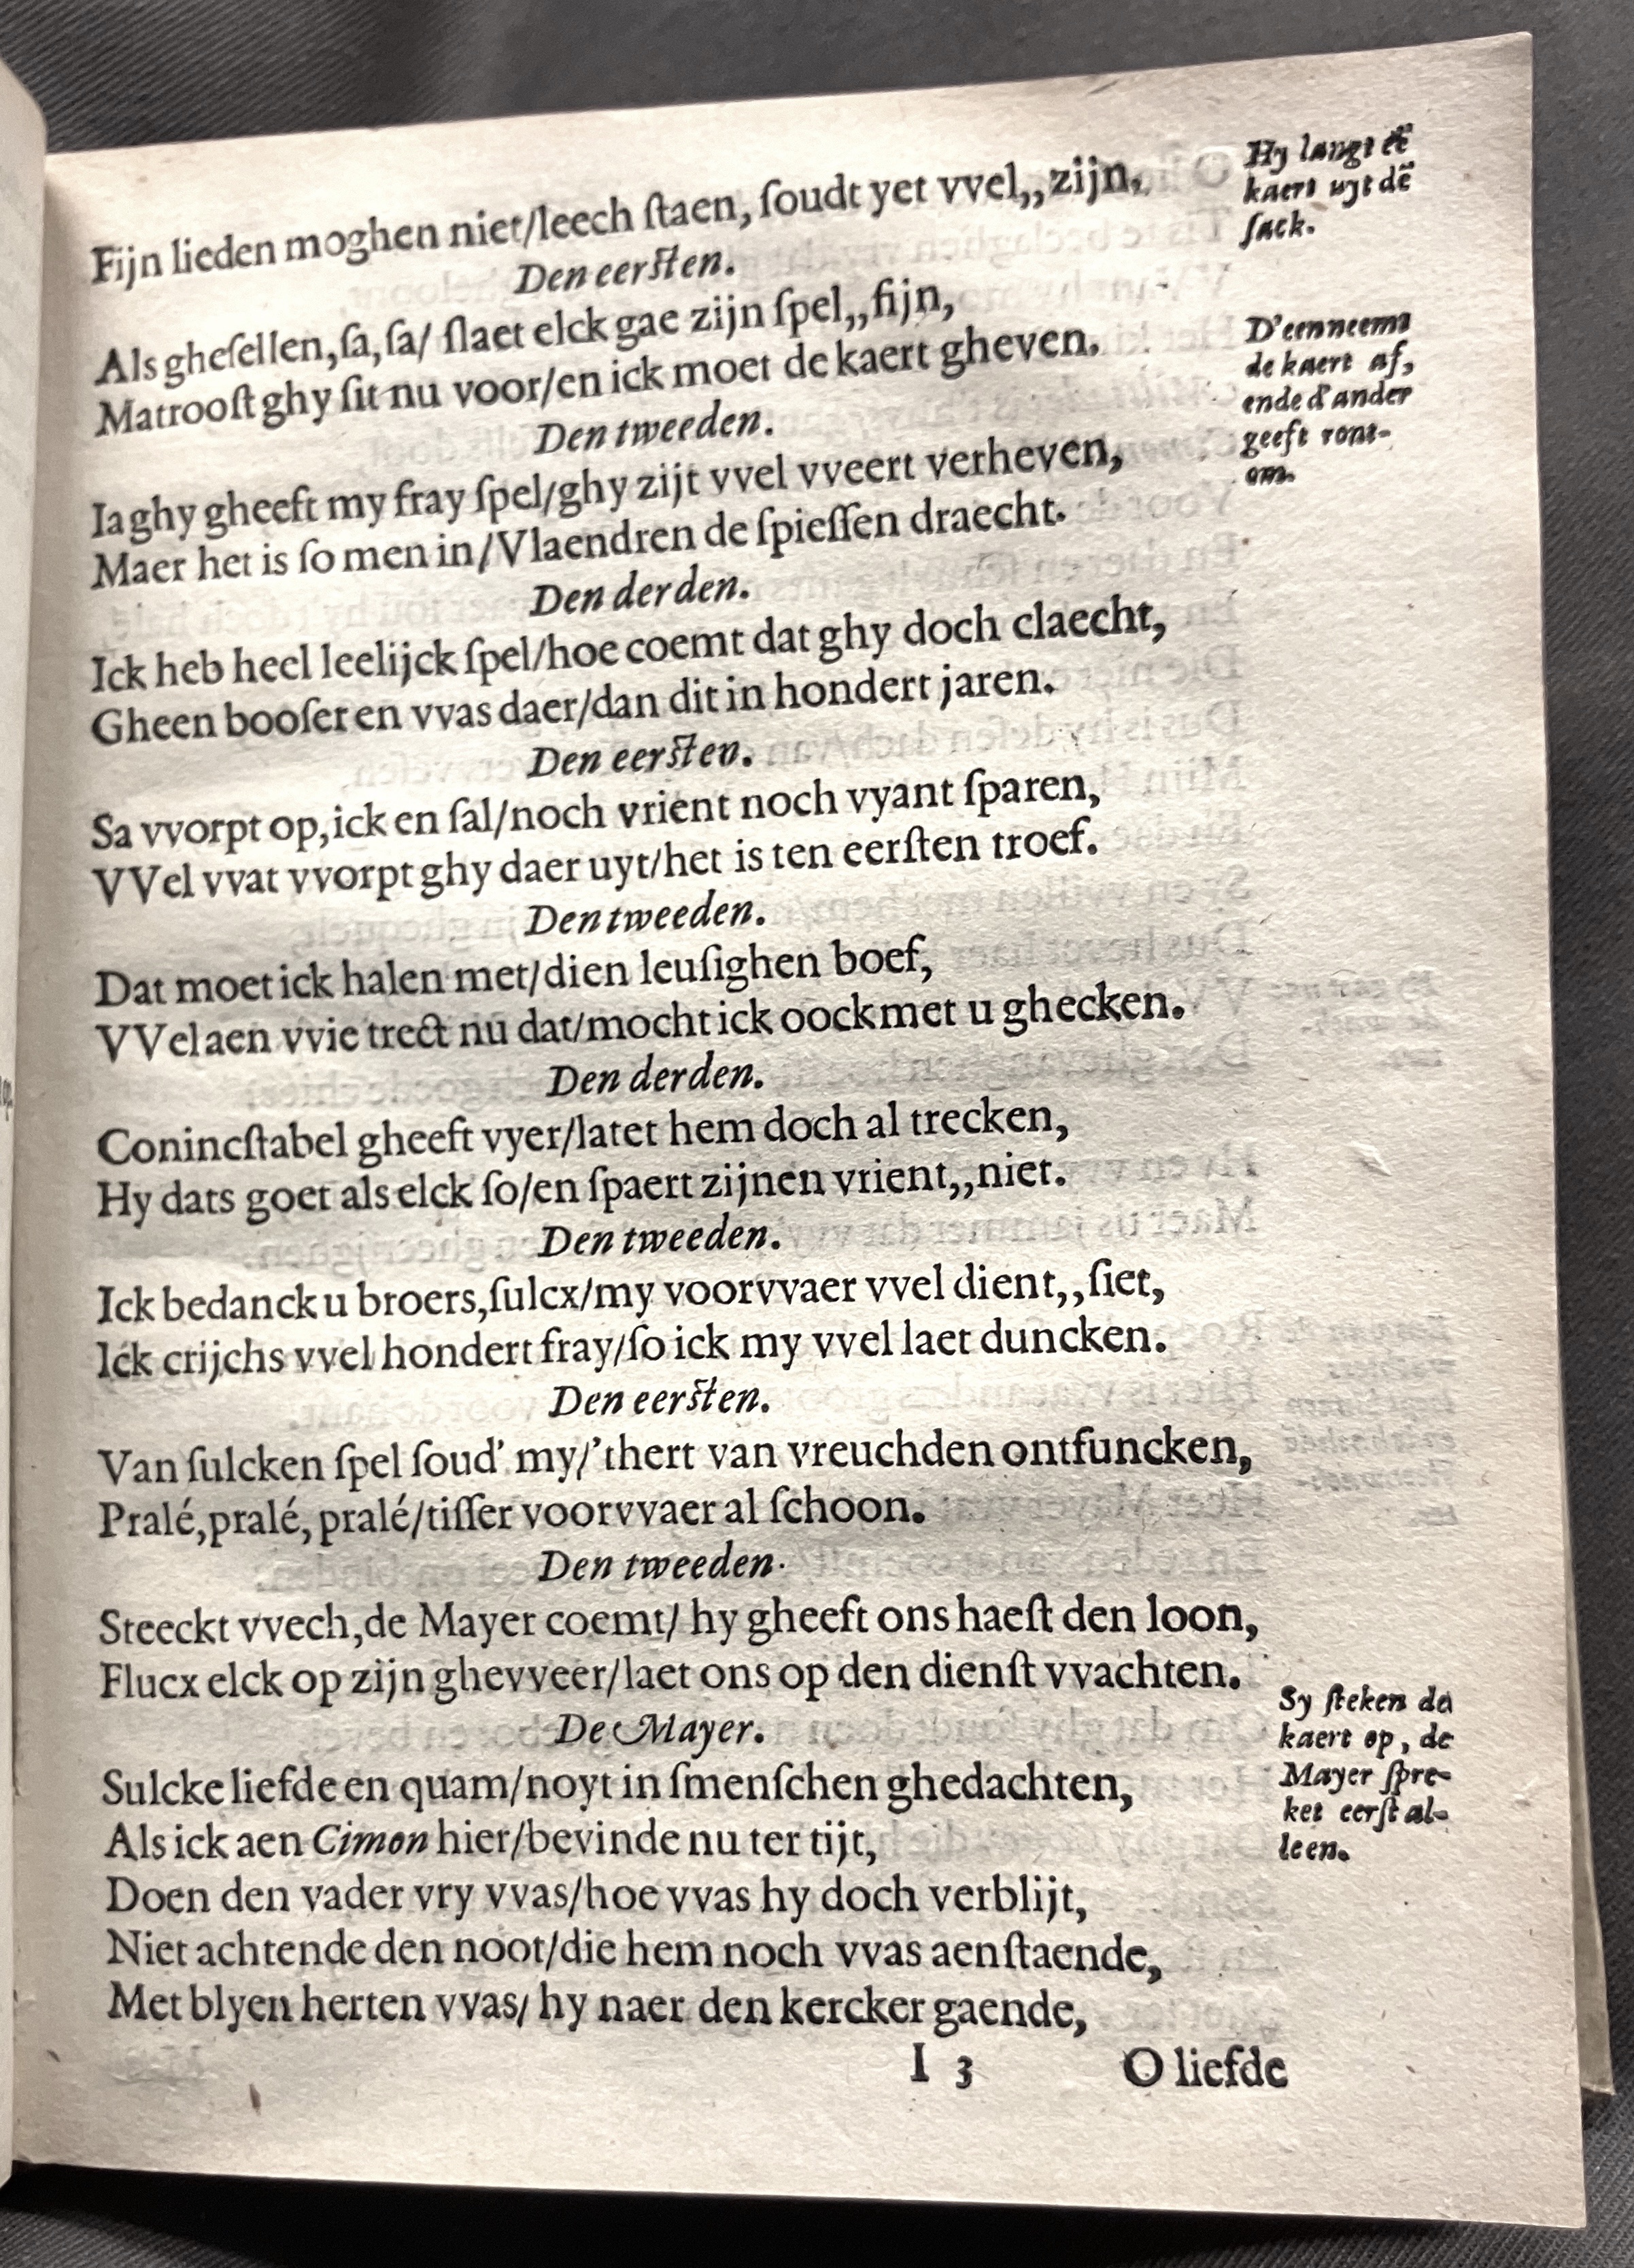 Fijn lieden moghen niet/leech ſtaen, ſoudt yet vvel,,zijn,
Hy langt ee
kaert uyt dē
ſack.
Den eerſten.
Als gheſellen,ſa,ſa/ ſlaet elck gae zijn ſpel,,fijn,
Matrooſt ghy ſit nu voor/en ick moet de kaert gheven.
D'een neemt
de kaert af,
ende d'ander
geeft ront-
om.
Den tweeden.
Ia ghy gheeft my fray ſpel/ghy zijt vvel vveert verheven,
Maer het is ſo men in/Vlaendren de ſpieſſen draecht.
Den derden.
Ick heb heel leelijck ſpel/hoe coemt dat ghy doch claecht,
Gheen booſer en vvas daer/dan dit in hondert jaren.
Den eerſten.
Sa vvorpt op,ick en ſal/noch vrient noch vyant ſparen,
VVel vvat vvorpt ghy daer uyt/het is ten eerſten troef.
Den tweeden.
Dat moet ick halen met/dien leuſighen boef,
VVel aen vvie trect nu dat/mocht ick oock met u ghecken.
Den derden.
Conincſtabel gheeft vyer/latet hem doch al trecken,
Hy dats goet als elck ſo/en ſpaert zijnen vrient,,niet.
Den tweeden.
Ick bedanck u broers,ſulcx/my voorvvaer vvel dient,,ſiet,
Ick crijchs vvel hondert fray/ſo ick my vvel laet duncken.
Den eerſten.
Van ſulcken ſpel ſoud' my/'thert van vreuchden ontfuncken,
Pralé,pralé,pralé/tiſſer voorvvaer al ſchoon.
Den tweeden.
Steeckt vvech,de Mayer coemt/ hy gheeft ons haeſt den loon,
Flucx elck op zijn ghevveer/laet ons op den dienſt vvachten.
Sy ſteken de
kaert op, de
Mayer ſpre-
ket eerſt al-
leen.
De Mayer.
Sulcke liefde en quam/noyt in ſmenſchen ghedachten,
Als ick aen Cimon hier/bevinde nu ter tijt,
Doen den vader vry vvas/hoe vvas hy doch verblijt,
Niet achtende den noot/die hem noch vvas aenſtaende,
Met blyen herten vvas/ hy naer den kercker gaende,
I 3
O liefde